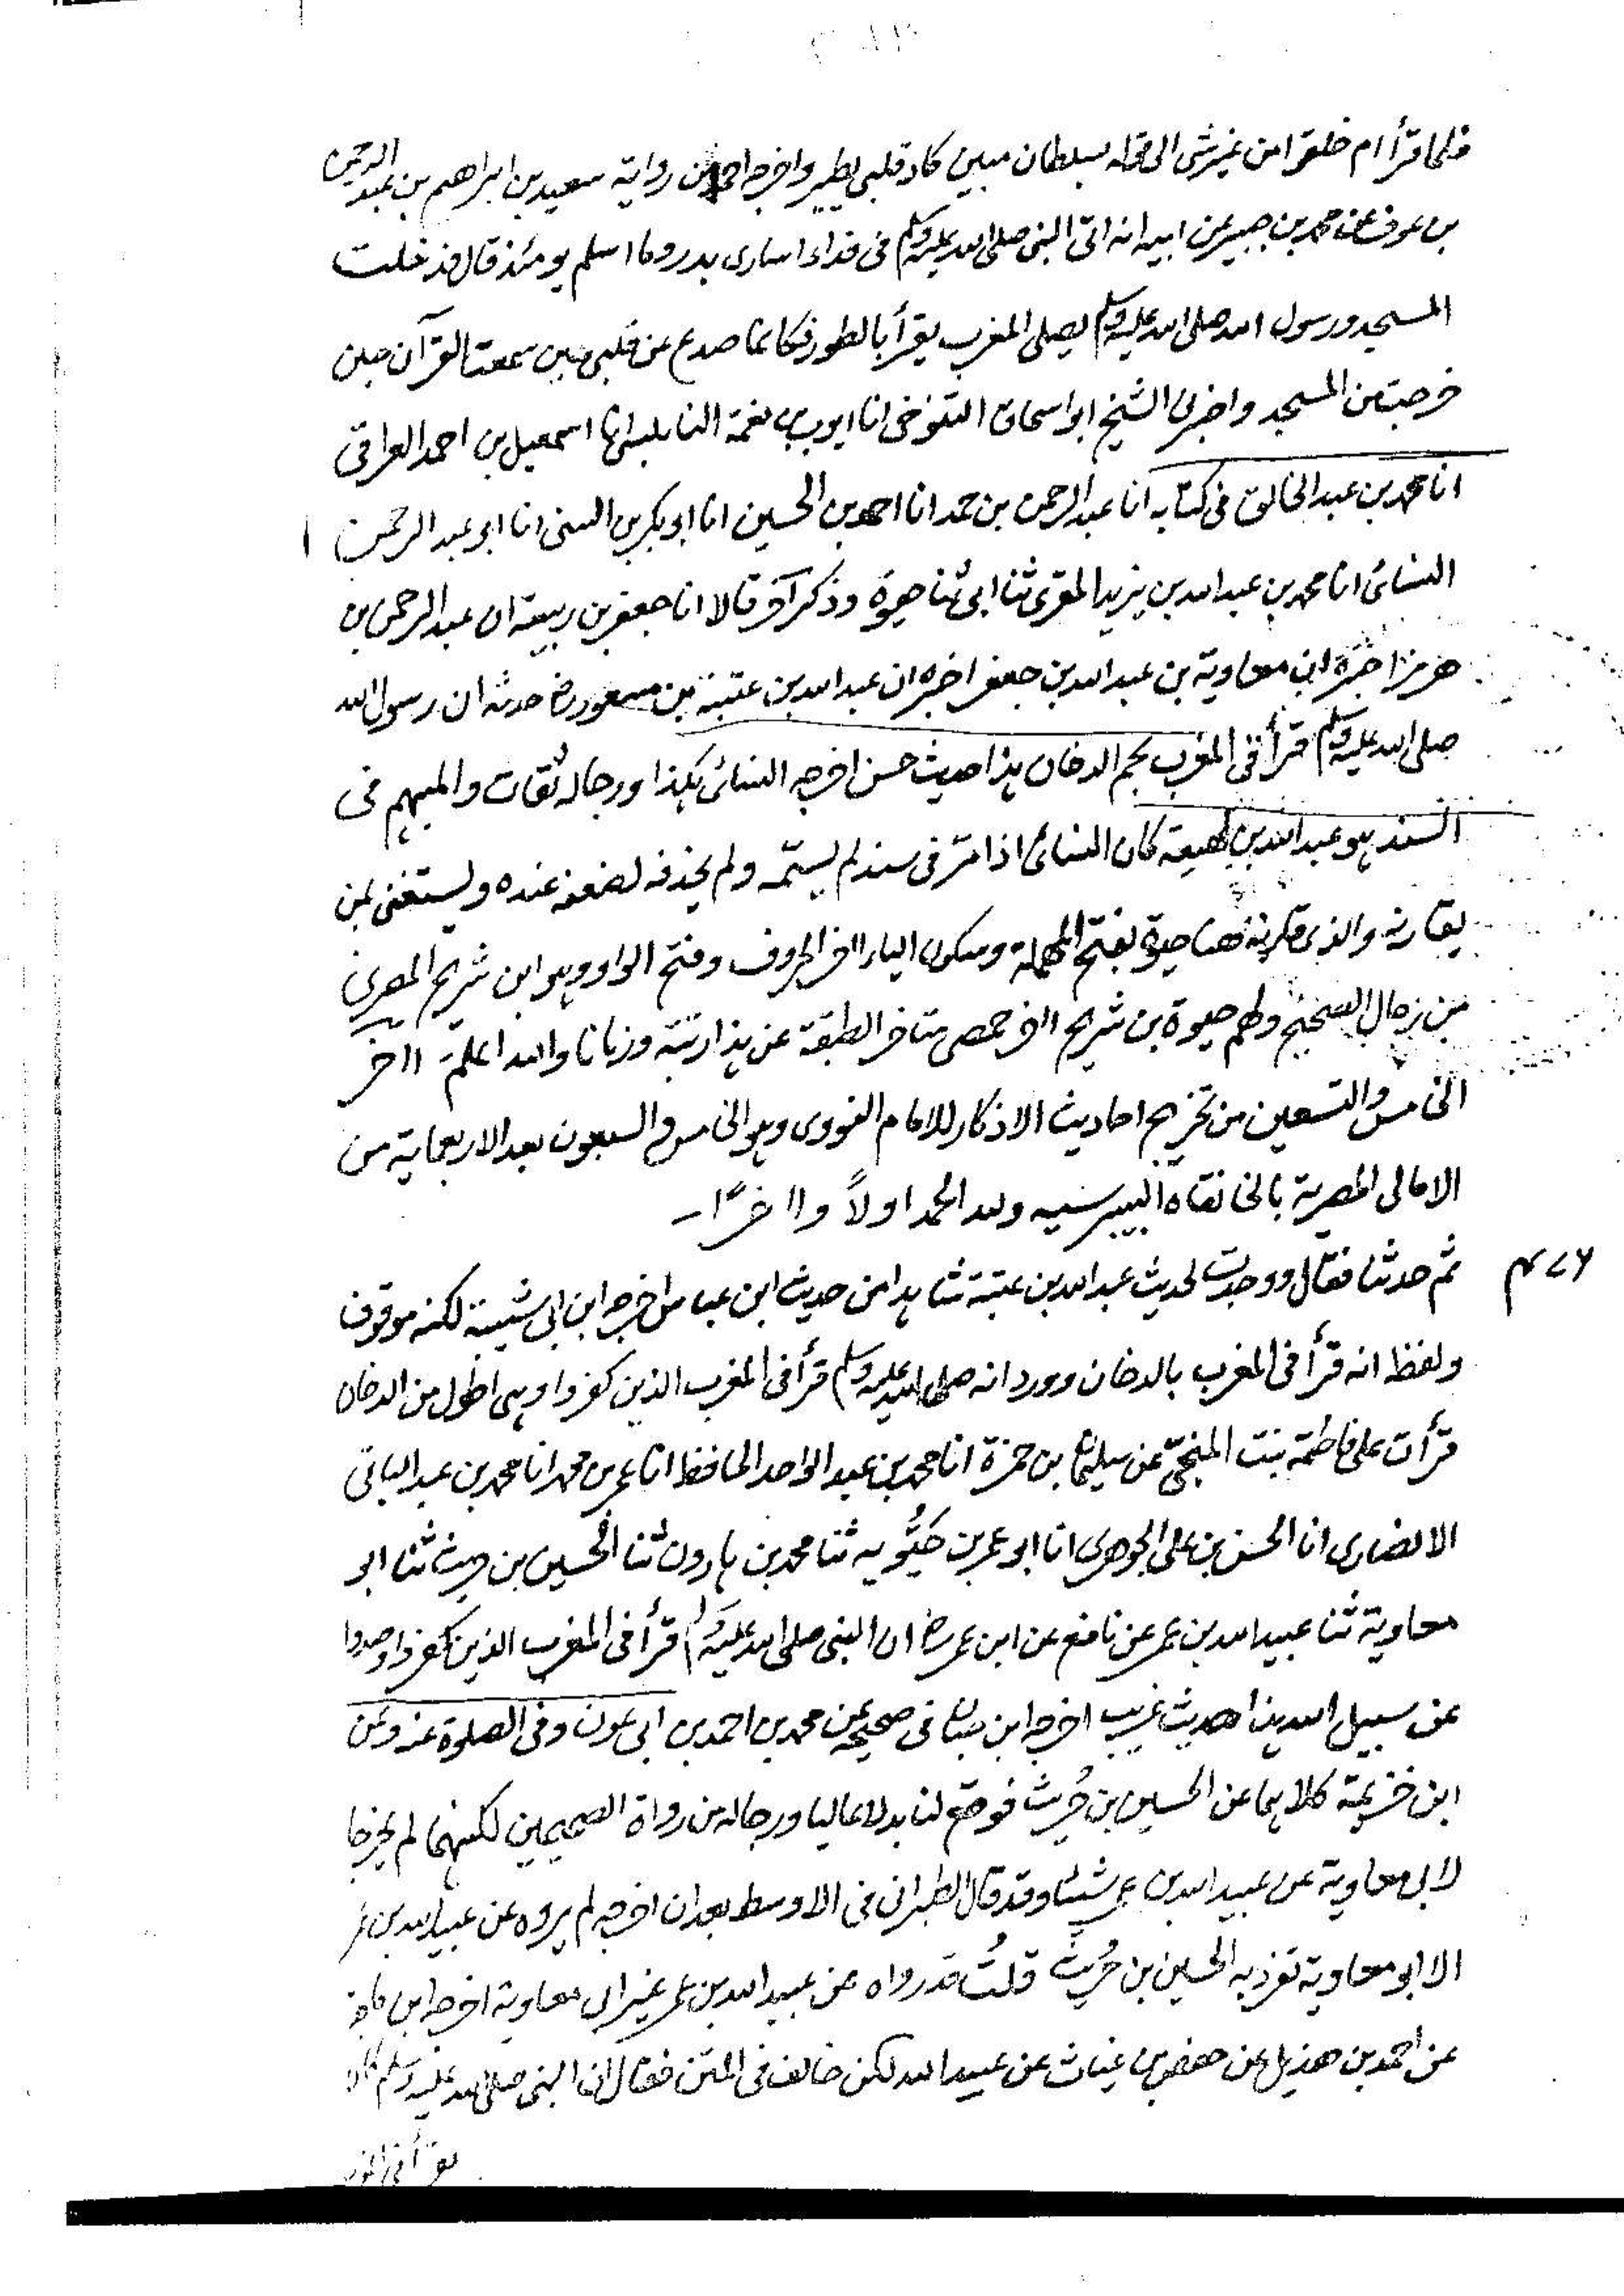 فلما قرأ ام خلقوا من غيرشى الى قوله بسلطان مبين كاد قلبى يطير واخرجه احمد من رواية سعيد بن ابراهيم بن عبد الرحمن
بن عوف عن محمد بن جبير عن ابيه انه اتى النبى صلى الله عليه وسلم فى فداء اسارى بدر وما اسلم يومئذ قال فدخلت
المسجد ورسول الله صلى الله عليه وسلم يصلى المغرب يقرأ بالطور فكانما صدع عن قلبى حين سمعت القرآن حين
خرجت من المسجد واخبرنى الشيخ ابو اسحاق التنوخى انا ايوب بن نعمة النابلسى انا اسمعيل بن احمد العراقى
انا محمد بن عبد الخالق فى كتابه انا عبد الرحمن بن حمد انا احمد بن الحسين انا ابو بكر بن السنى انا ابو عبد الرحمن
النسائى انا محمد بن عبد الله بن يزيد المقرى ثنا ابى ثنا حيوة وذكر آخر قالا انا جعفر بن ربيعة ان عبد الرحمن بن
هرمز اخبره ان معاوية بن عبد الله بن جعفر اخبره ان عبد الله بن عتبة بن مسعود رض حدثه ان رسول الله
صلى الله عليه وسلم قرأ فى المغرب بحم الدخان هذا حديث حسن اخرجه النسائى هكذا ورجاله ثقات والمبهم فى
السند هو عبد الله بن لهيعة كان النسائى اذا مر فى سند لم يسمه ولم يحذفه لضعفه عنده ويستغنى بمن
يقارنه والذى قرنه هنا حيوة بفتح المهملة وسكون الياء اآخر الحروف وفتح الواو وهو ابن شريح المصرى
من رجال الصحيح ولهم حيوة بن شريح اآخر حمصى متاخر الطبقة عن هذا رتبة وزمانا والله اعلم اآخر
الخامس والتسعين من تخريج احاديث الاذكار للامام النووى وهو الخامس والسبعون بعد الاربعماية من
الامالى المصرية بالخانقاه البيبرسيه ولله الحمد اولاً واآخرًا-
٤٧٦ ثم حدثنا فقال ووجدت لحديث عبد الله بن عتبة شاهدا من حديث ابن عباس اخرجه ابن ابى شيبة لكنه موقوف
ولفظ انه قرأ فى المغرب بالدخان وورد انه صلى الله عليه وسلم قرأ فى المغرب الذين كفروا وهى اطول من الدخان
قرأت على فاطمة بنت المنجى عن سليمان بن حمزة انا محمد بن عبد الواحد الحافظ انا عمر بن محمد انا محمد بن عبد الباقى
الانصارى انا الحسن بن على الجوهرى انا ابو عمر بن حيُّويه ثنا محمد بن هارون ثنا الحسين بن حريث ثنا ابو
معاوية ثنا عبيد الله بن عمر عن نافع عن ابن عمر رض ان النبى صلى الله عليه وسلم قرأ فى المغرب الذين كفروا وصدوا
عن سبيل الله هذا حديث غريب اخرجه ابن حبان فى صحيحه عن محمد بن احمد بن ابى عون وفى الصلوة عنه وعن
ابن خزيمة كلاهما عن الحسين بن حُريث فوقع لنا بدلا عاليا ورجاله من رواة الصحيحين لكنهما لم يخرجا
لابى معاوية عن عبيد الله بن عمر شيئا وقد قال الطبرانى فى الاوسط بعد ان اخرجه لم يروه عن عبيد الله بن عمر
الا ابو معاوية تفرد به الحسين بن حُريث قلتُ قد رواه عن عبيد الله بن عمر غير ابى معاوية اخرجه ابن ماجة
عن احمد بن هذيل عن حفص بن غياث عن عبيد الله لكن خالف فى المتن فقال ان النبى صلى الله عليه وسلم كان
يقرأ فى المغرب